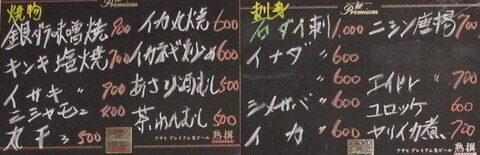 Premium
焼物
銀ダラ味噌焼 900
キンキ塩焼 700
イサキ 〃 900
ニシャモ 〃 400
丸干 3 500
イカ丸焼 600
イカネギ炒め 600
あさり酒むし 500
茶わんむし 500
アサヒプレミアム生ビール 熟撰
Premium
刺身
石ダイ刺 1,000
イナダ 〃 600
シメサバ 〃 600
イカ 〃 600
ニシン唐揚 700
エイヒレ 700
コロッケ 600
ヤリイカ煮 700
アサヒプレミアム生ビール 熟撰